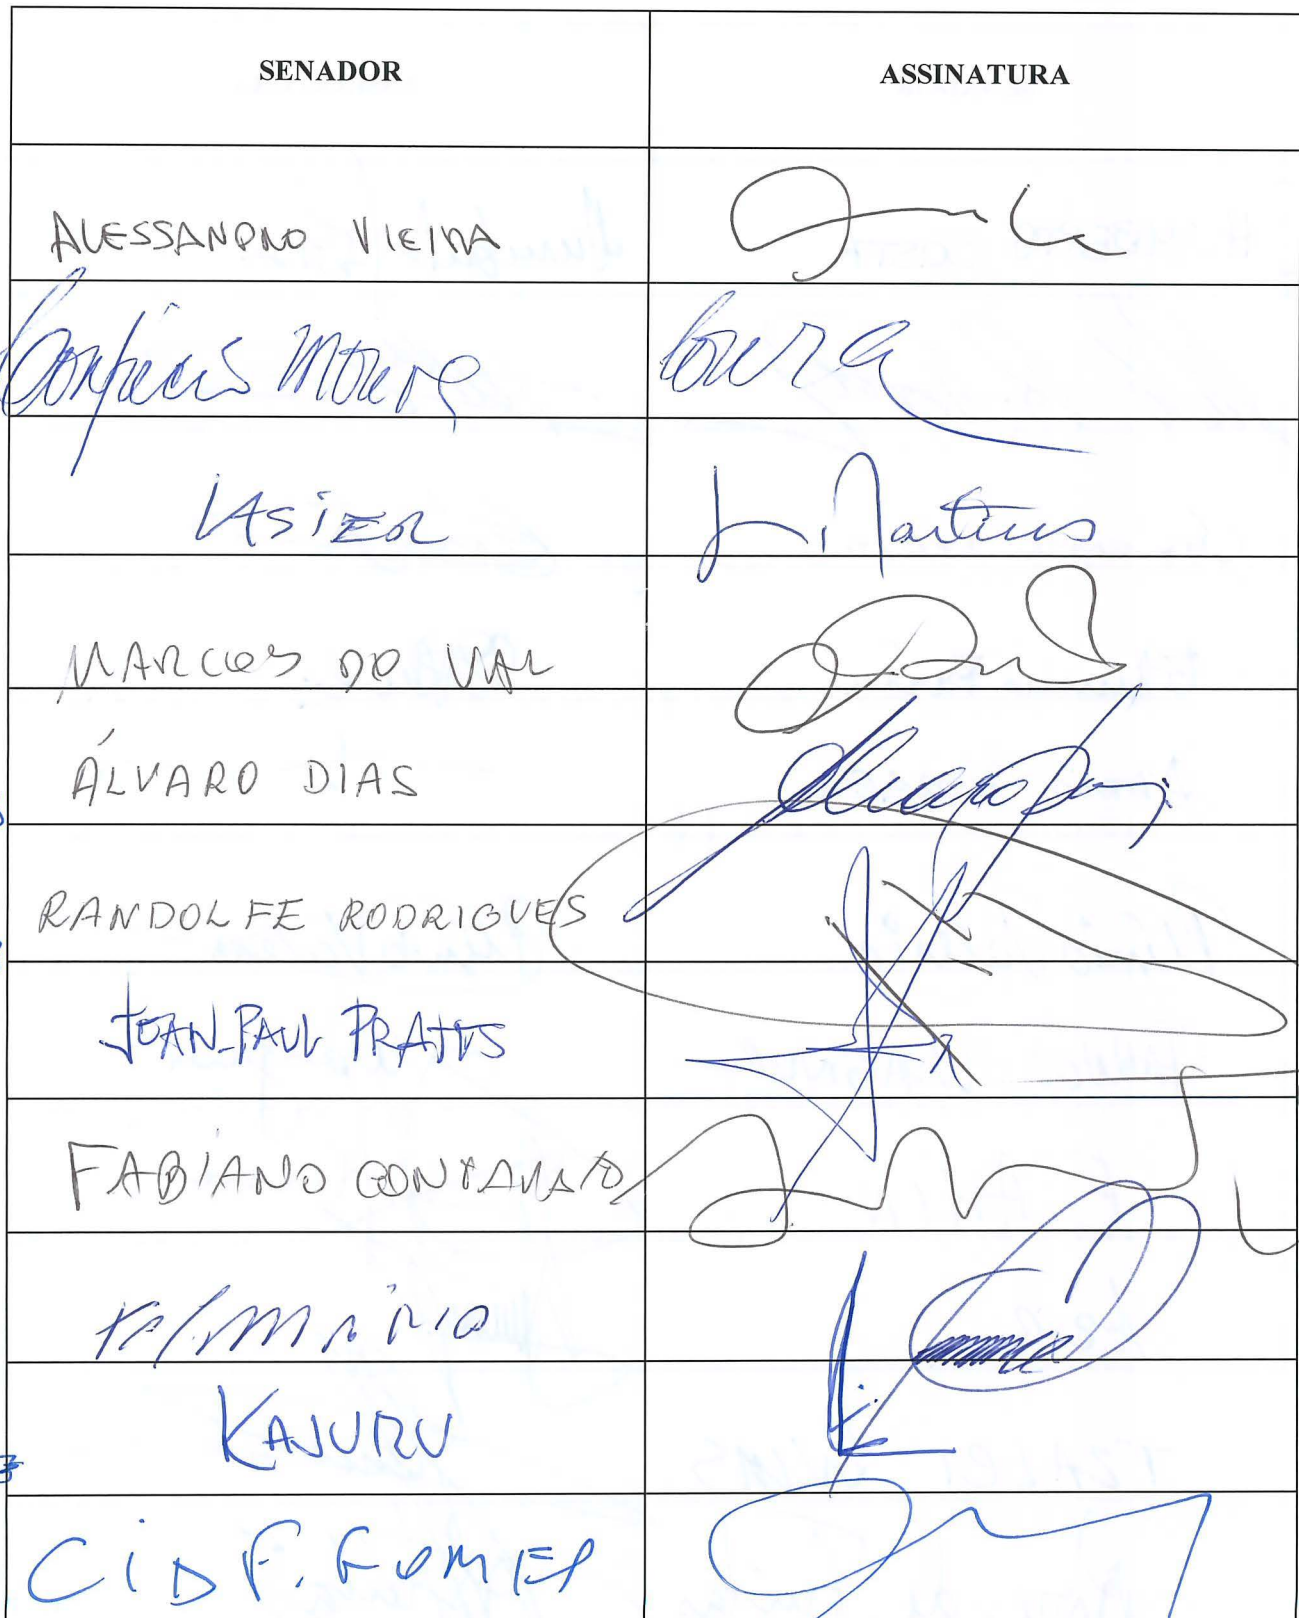 SENADOR ASSINATURA
ALESSANDRO VIEIRA
Confúcio Moura Moura
LASIER L. Martins
MARCOS DO VAL
ÁLVARO DIAS Alvaro Dias
RANDOLFE RODRIGUES
JEAN-PAUL PRATES
FABIANO CONTARATO
KAJURU
CID F. GOMES